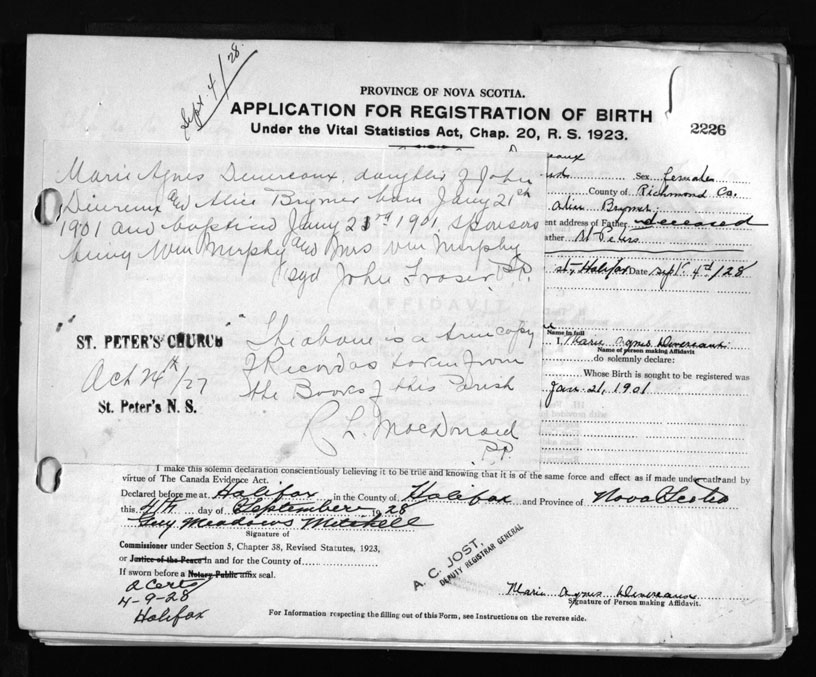 Sept 4/28.
PROVINCE OF NOVA SCOTIA.
APPLICATION FOR REGISTRATION OF BIRTH
Under the Vital Statistics Act, Chap. 20, R. S. 1923.
2226
Marie Agnes Deureaux, daughter of John
Deureux and Alice Brymer born Jany 21st
1901 and baptised Jany 23rd 1901 Sponsors
being Wm Murphy and Mrs Wm Murphy
sgd John Fraser P.P.
AFFIDAVIT
ST. PETER'S CHURCH
Oct 24th/27
St. Peter's N. S.
The above is a true copy
of Record as taken from
the Books of this Parish
R L. MacDonald
P.P.
eaux
Sex females
County of Richmond Co.
alice Brymer
ent address of Father deceased
ather St Peters
st, Halifax Date Sept 4th/28
Name in full
I, Marie Agnes Devereaux
Name of person making Affidavit
do solemnly declare:
Whose Birth is sought to be registered was
Jan. 21, 1901
I make this solemn declaration conscientiously believing it to be true and knowing that it is of the same force and effect as if made under oath and by
virtue of The Canada Evidence Act.
Declared before me at Halifax in the County of Halifax and Province of Nova Scotia
this 4th day of September 1928
Guy Meadows Mitchell
Signature of
Commissioner under Section 5, Chapter 38, Revised Statutes, 1923,
or Justice of the Peace in and for the County of
If sworn before a Notary Public affix seal.
a Certs
4-9-28
Halifax
A. C. JOST,
DEPUTY REGISTRAR GENERAL
Marie Agnes Devereaux
Signature of Person making Affidavit.
For Information respecting the filling out of this Form, see Instructions on the reverse side.